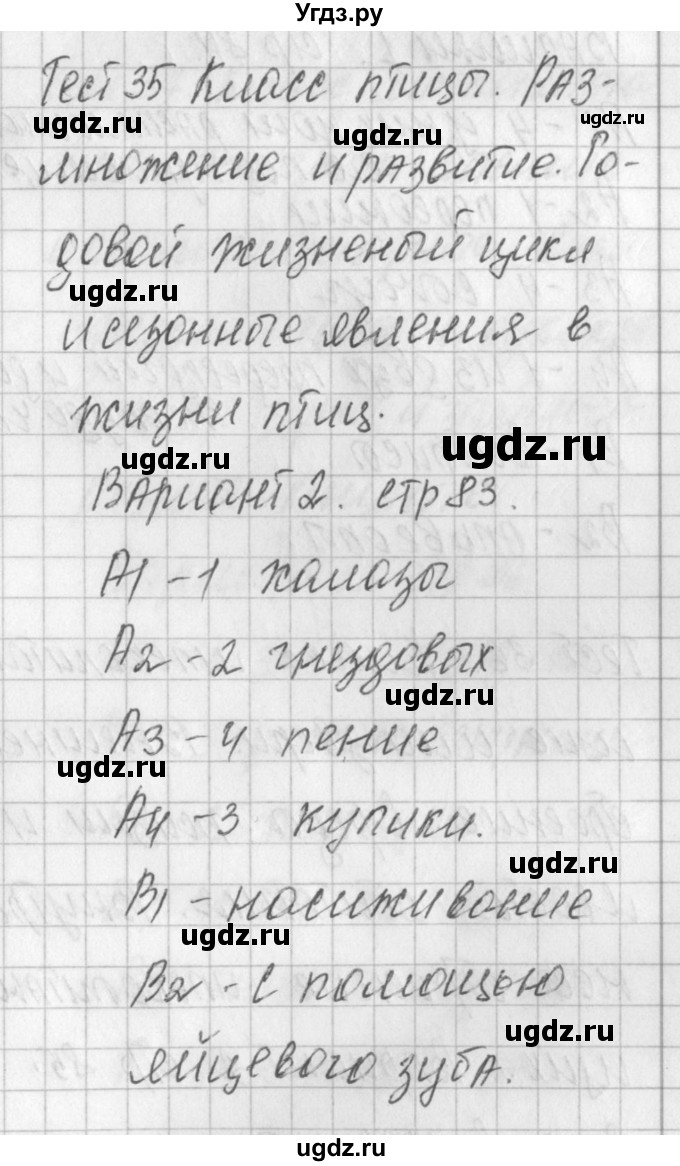 Угдз.ру
Тест 35 Класс птицы. Раз-
ugdz.ru
ugdz.ru
ugdz.ru
множение и развитие. Го-
довой жизненый цикл
ugdz.ru
и сезонные явления в
жизни птиц.
ugdz.ru
ugdz.ru
Вариант 2. стр 83.
А1 - 1 халазы
А2 - 2 гнездовых
ugdz.ru
А3 - 4 пение
ugdz.ru
А4 - 3 кулики.
ugdz.ru
В1 - насиживание
ugdz.ru
В2 - с помощью
ugdz.ru
яйцевого зуба.
ugdz.ru